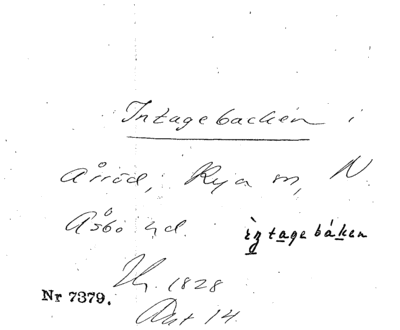 Intagebacken i
Årröd, Rya sn, N.
Åsbo hd. ìntagebáken
1828
Nr 7379.
14